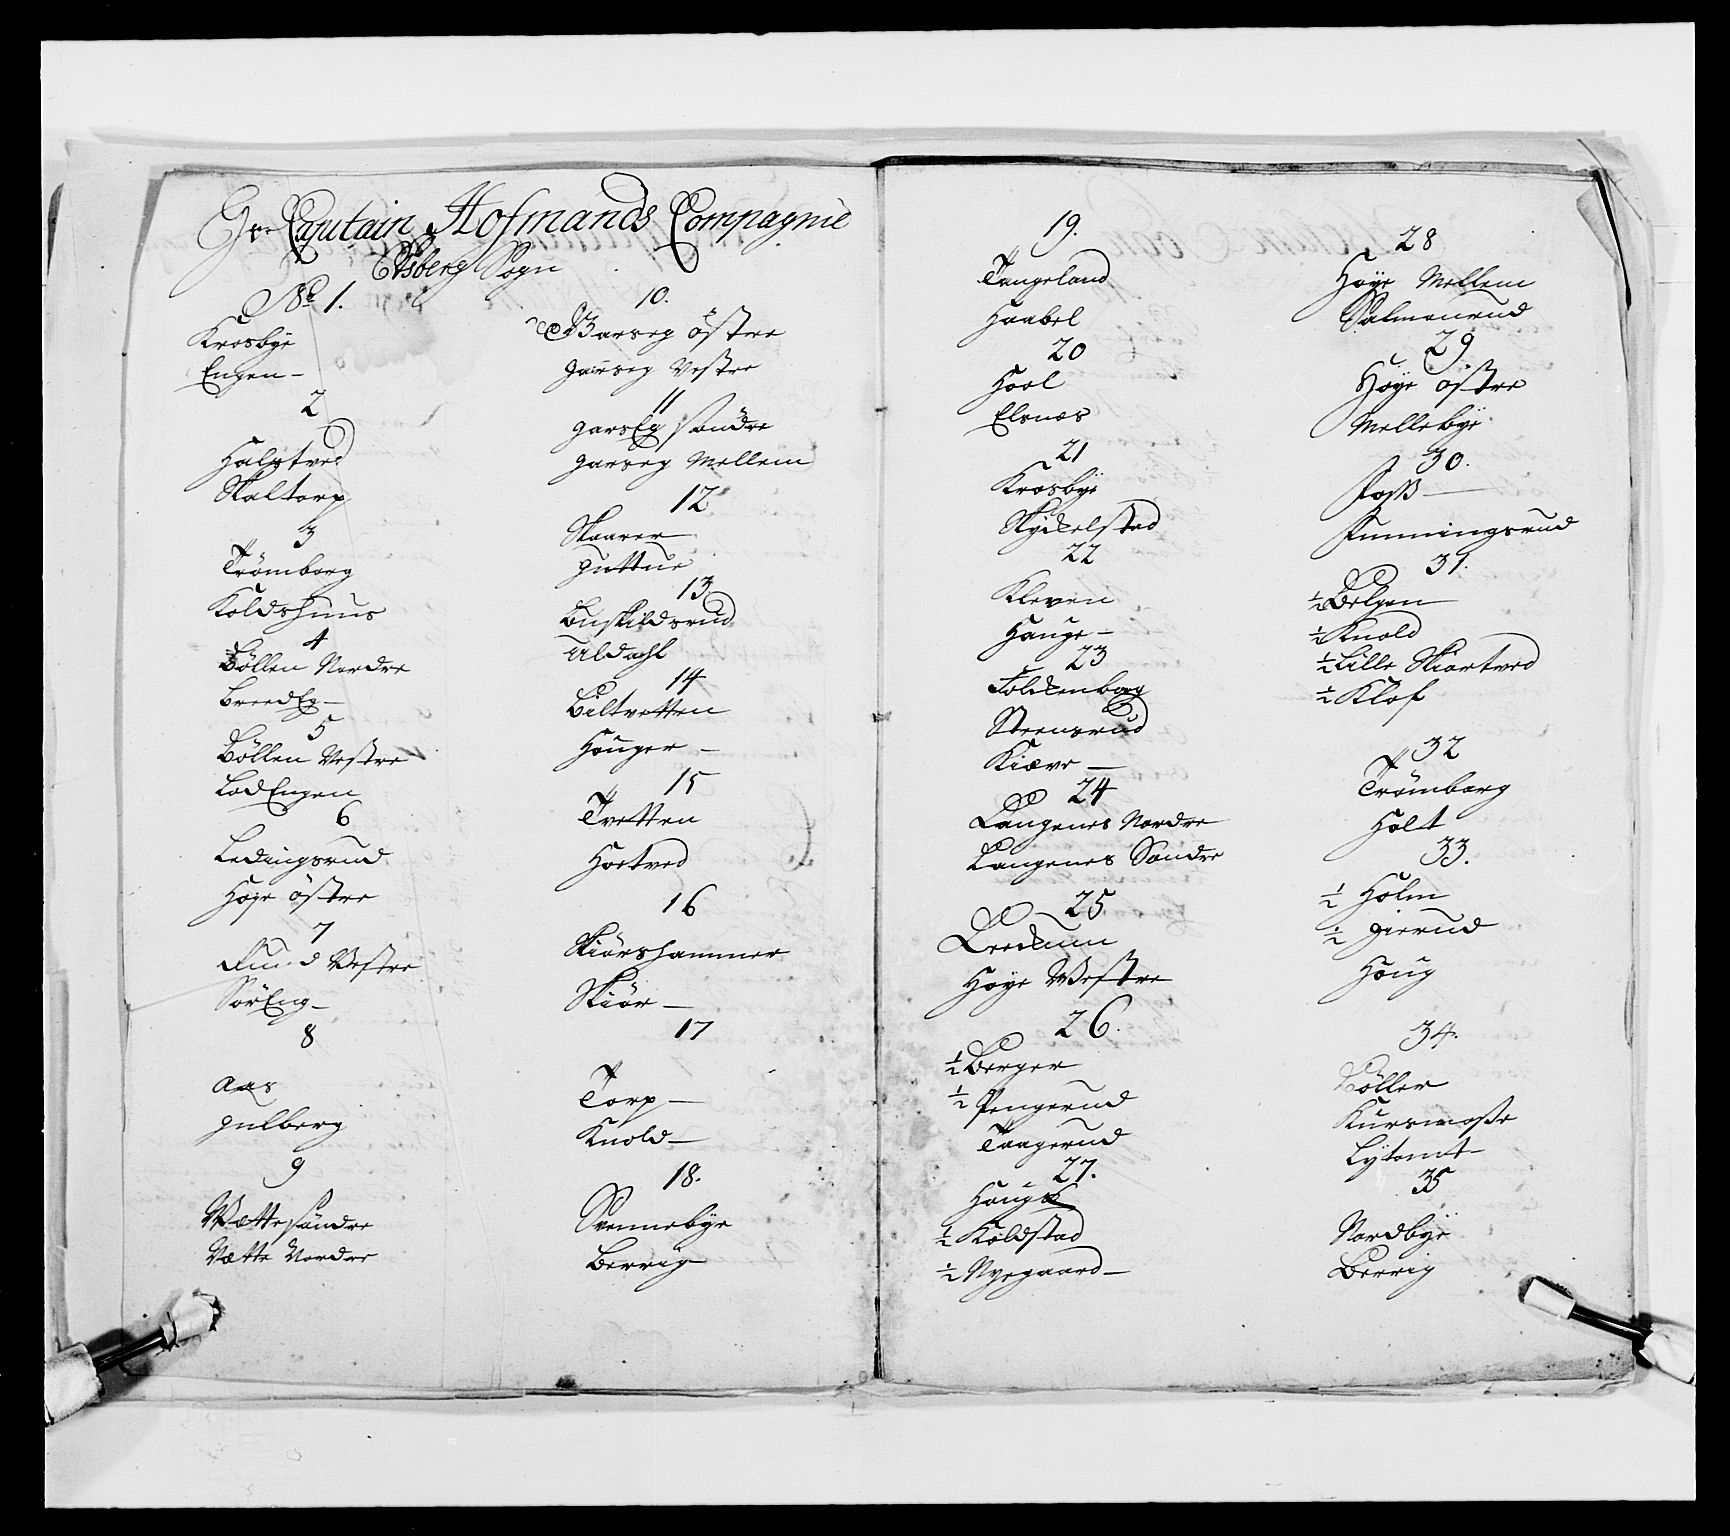 Hr Capitain Hofmands Compagnie
Edsberg Sogn
No 1.
Krosbye
Engen –
2
Halstved
Skaltorp
3
Trömborg
Koldshuus
4
Böllen Nordre
BreedEg –
5
Böllen Vestre
LodEngen
6
Ledingsrud
Høye östre
7
Ruud Vestre
SörEng –
8
Aas
gulberg
9
Vætte söndre
Vætte Nordre
10.
Garseg östre
garseg Vestre
11
garsEg söndre
garseg Mellem
12
Skaarer
guttue
13
Buskildsrud
Uldahl
14
Biltvetten
Houger –
15
Tvetten
Hoetved
16
Skiörshammer
Skiör –
17
Torp –
Knold –
18.
Svennebye
Berrig
19.
Tangeland
Haabel
20
Hoel
Elsnes
21
Krosbye
Skydelstad
22
Kleven
Hauge –
23
Folkenborg
Steensrud
Kiæve –
24
Langenes Nordre
Langenes Søndre
25
Leekum
Høye Vestre
26.
½ Berger
½ Pengerud
Taagerud
27.
Houg
½ Koldstad
½ Nyegaard –
28
Høye Mellem
Salmonrud
29
Høye östre
Mellebye
30.
Foss –
Funningsrud
31.
½ Velgen
½ Knold
½ Lille Skiortved
½ Kløf
32
Trömborg
Holt
33.
½ Holm
½ gierud
Houg
34.
Böller
Kursmosse
Lytomt –
35
Nordbye
Berrig